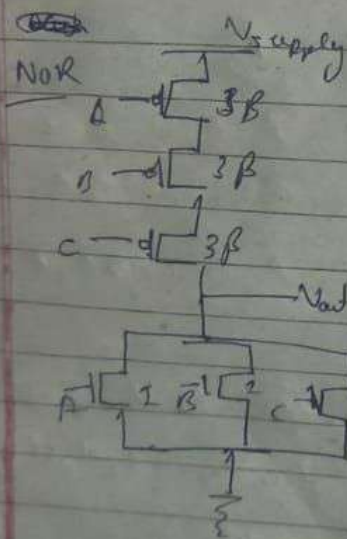 Vsupply
NOR
A 3β
B 3β
C 3β
Vout
A 1 B 1 C